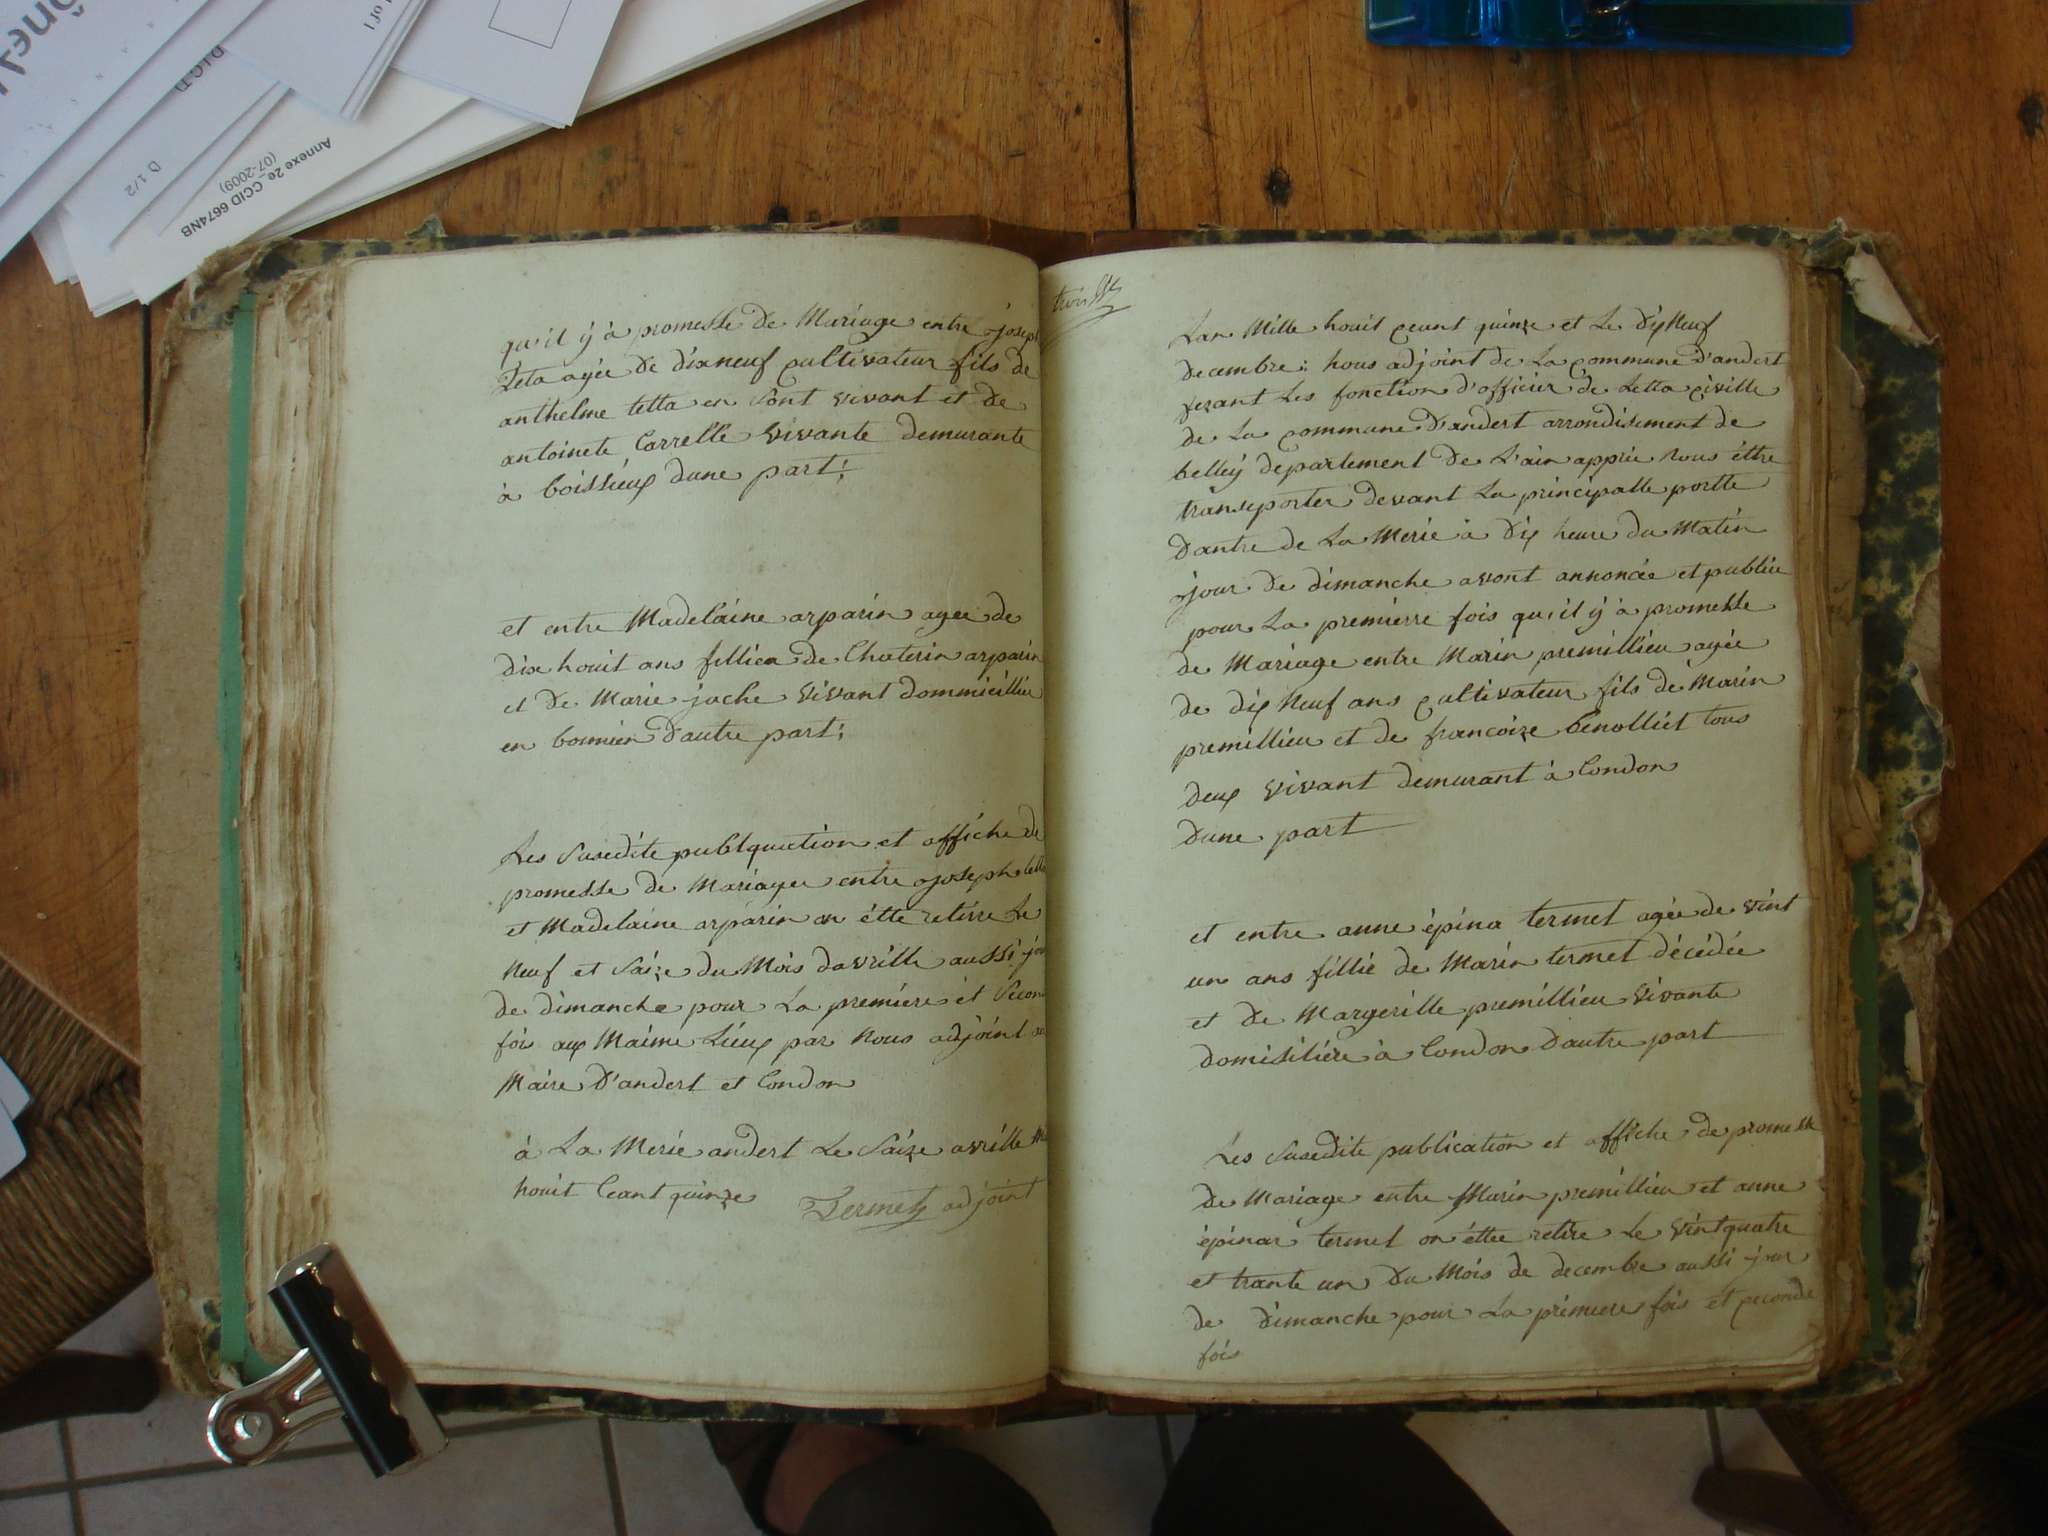 1 of 1
D.I.C.T)
D 1/2
Annexe 2e_CCID 6674NB
(07-2009)
qu'il ÿ à promesse de Mariage entre joseph
Teta agée De dixneuf cultivateur fils de
anthelme tetta en Sont vivant et de
antoinete Carrelle vivante demurante
à Coissieux dune part;
et entre Madelaine arparin agée de
dix houit ans fillien de Chaterin arparin
et De Marie jache vivant dommicillie
en bonnien D'autre part;
Les Susedite publquation et affiche de
promesse de Mariagee entre joseph tetta
et Madelaine arparin on étte retirre Le
Neuf et Saize du Mois davrille aussi jour
de dimanche pour La premiere et Secon
foir aux Maime Lieux par Nous adjoint au
Maire D'andert et Condon
à La Merie andert Le Saize avrille Mil
houit Ceant quinze Termet adjoint
Lan Mille houit ceunt quinze et Le DixNeuf
Decembre: nous adjoint de La commune D'andert
fezant Les fonction d'officier de Letta civille
de La commune D'andert arrondisement de
belleÿ departement De L'ain apprie Nous éttre
transeporter devant La principalle portte
Dantre de La Merie à Dix heure du Matin
jour De dimanche avont annoncée et publiee
pour La premierre fois qu'il ÿ à promesse
de Mariage entre Marin premillieu agée
de dix Neuf ans cultivateur fils de Marin
premillieu et de francoize Benolliet tous
deux vivant demurant à Condon
Dune part
et entre anne épina termet agée de vint
un ans fillie de Marin termet décédée
et De Margerille premillieu vivante
domisiliére à Condon D'autre part
Les Susedite publication et affiche de promesse
de Mariage entre Marin premillieu et anne
épinar termet on éttee retire Le vintquatre
et trante un Du Mois de decembre aussi jour
de Dimanche pour La premiere fois et seconde
fois